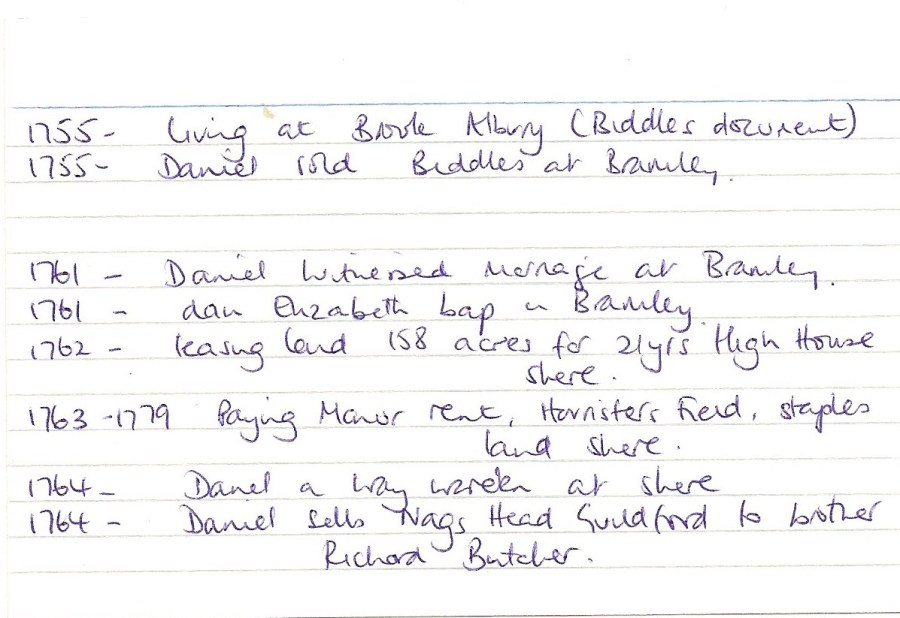 1755- living at Brook Albury (Biddles document)
1755- Daniel sold Biddles at Bramley.
1761 - Daniel witnessed marriage at Bramley.
1761 - dau Elizabeth bap in Bramley
1762 - leasing land 158 acres for 21yrs High House
shere.
1763-1779 Paying Manor rent, Field, staples
land shere.
1764- Daniel a way warden at shere
1764- Daniel sells Nags Head Guildford to brother
Richard Butcher.